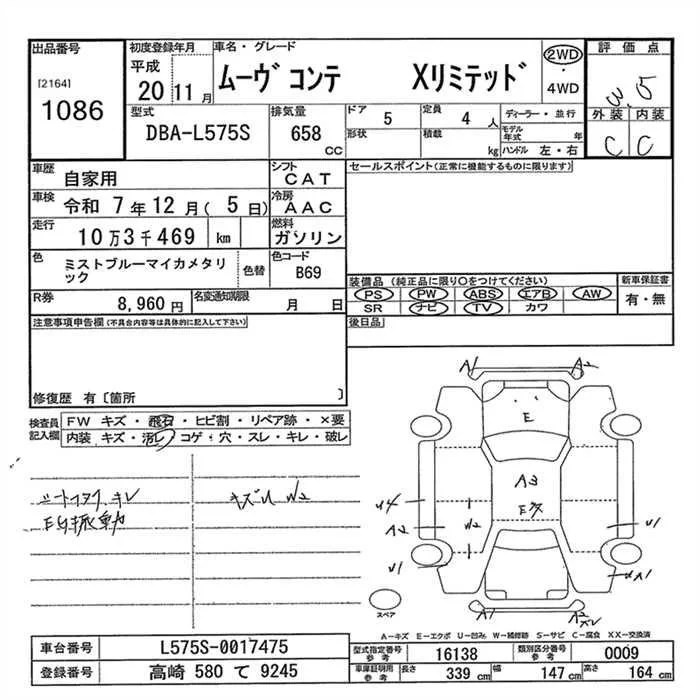 出品番号 初度登録年月 車名・グレード 評価点
[2164] 平成 ムーヴ コンテ Xリミテッド 2WD ・ 4WD 3.5
1086 20 11月 外装 内装
C C
型式 DBA-L575S 排気量 658 CC ドア 5 定員 4 人 ディーラー・並行
形状 積載 kg モデル年式 年 ハンドル 左・右
車歴 自家用 シフト CAT セールスポイント(正常に機能するものに限ります)
車検 令和 7年 12月( 5日) 冷房 AAC
走行 10万3千469 km 燃料 ガソリン
色 ミストブルーマイカメタリック 色替 色コード B69
装備品 (純正品に限り○をつけてください) 新車保証書
PS PW ABS エアB AW 有・無
SR ナビ TV カワ
R券 8,960円 名変通知期限 月 日
後日品
注意事項申告欄(不具合内容等は具体的に記入して下さい)
修復歴 有〔箇所 〕
検査員記入欄 FW キズ・飛石・ヒビ割・リペア跡・×要
内装 キズ・汚レ・コゲ・穴・スレ・キレ・破レ
キレ
振動
キズU W2
A1 A2
E
A3
E
U4
A2
W2
U1
U1
A1
A1
A2
スペア
A-キズ E-エクボ U-凹み W-補修跡 S-サビ C-腐食 XX-交換済
車台番号 L575S-0017475 型式指定番号 参考 16138 類別区分番号 参考 0009
登録番号 高崎 580 て 9245 車庫証明用 参考 長さ 339 cm 幅 147 cm 高さ 164 cm